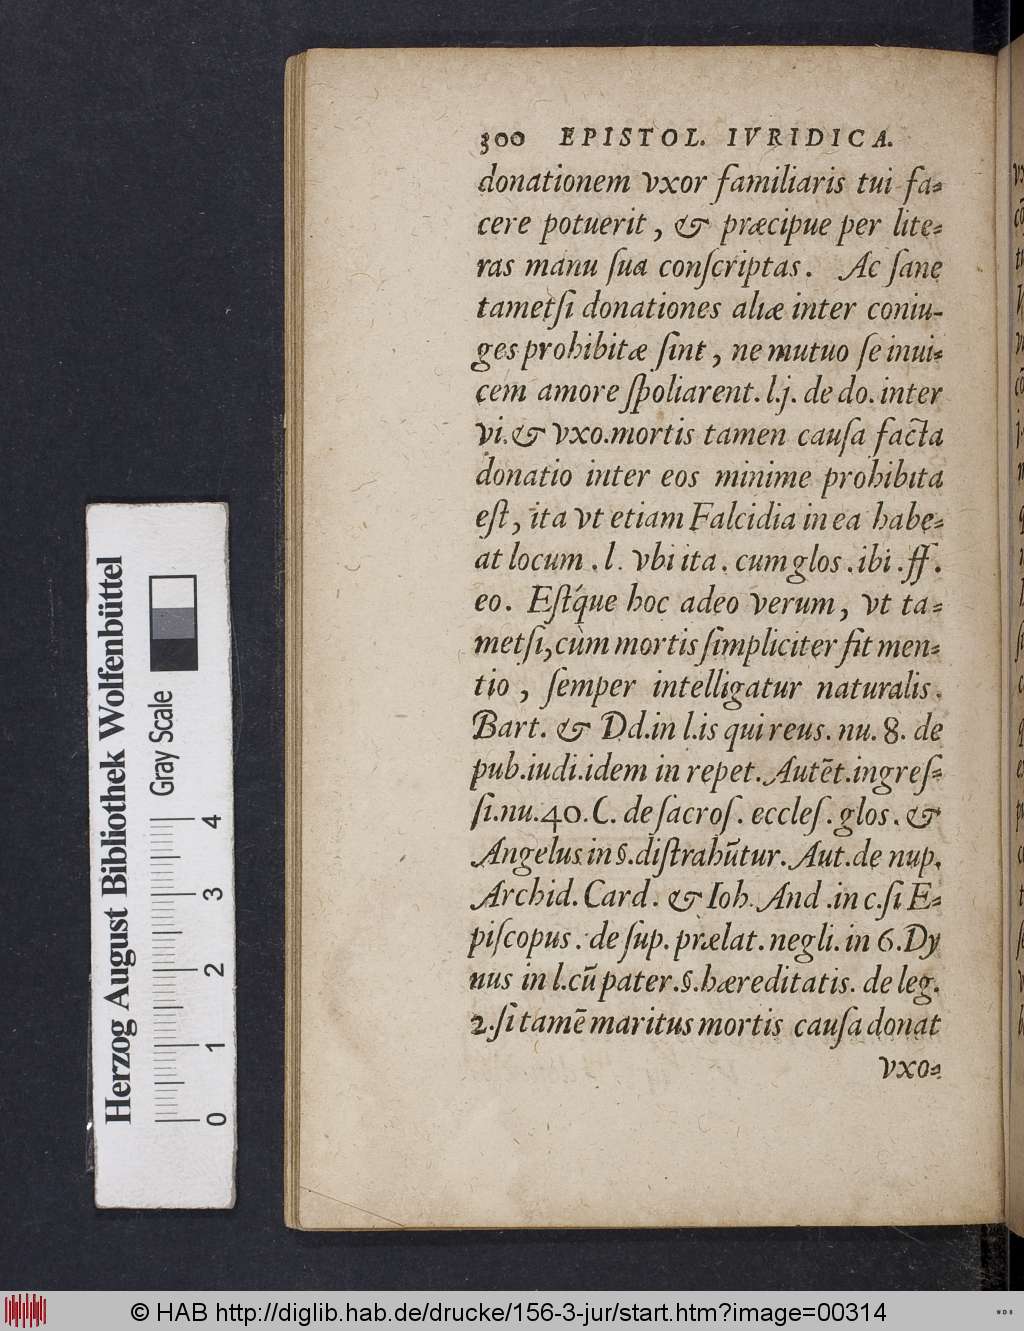 300 EPISTOL. IVRIDICA.
donationem vxor familiaris tui fa-
cere potuerit, & præcipue per lite-
ras manu ſua conſcriptas. Ac ſane
tametſi donationes aliæ inter coniu-
ges prohibitæ ſint, ne mutuo ſe inui-
cem amore ſpoliarent. l.j. de do. inter
vi. & vxo. mortis tamen cauſa facta
donatio inter eos minime prohibita
eſt, ita vt etiam Falcidia in ea habe-
at locum. l. vbi ita. cum glos. ibi. ff.
eo. Eſtq́ue hoc adeo verum, vt ta-
metſi, cùm mortis ſimpliciter fit men-
tio, ſemper intelligatur naturalis.
Bart. & Dd. in l. is qui reus. nu. 8. de
pub. iudi. idem in repet. Autēt. ingreſ-
ſi. nu. 40. C. de ſacroſ. eccleſ. glos. &
Angelus in §. diſtrahūtur. Aut. de nup.
Archid. Card. & Ioh. And. in c. ſi E-
piſcopus. de ſup. prælat. negli. in 6. Dy
nus in l. cū pater. §. hæreditatis. de leg.
2. ſi tamē maritus mortis cauſa donat
vxo-
Herzog August Bibliothek Wolfenbüttel
Gray Scale
0 1 2 3 4
© HAB http://diglib.hab.de/drucke/156-3-jur/start.htm?image=00314